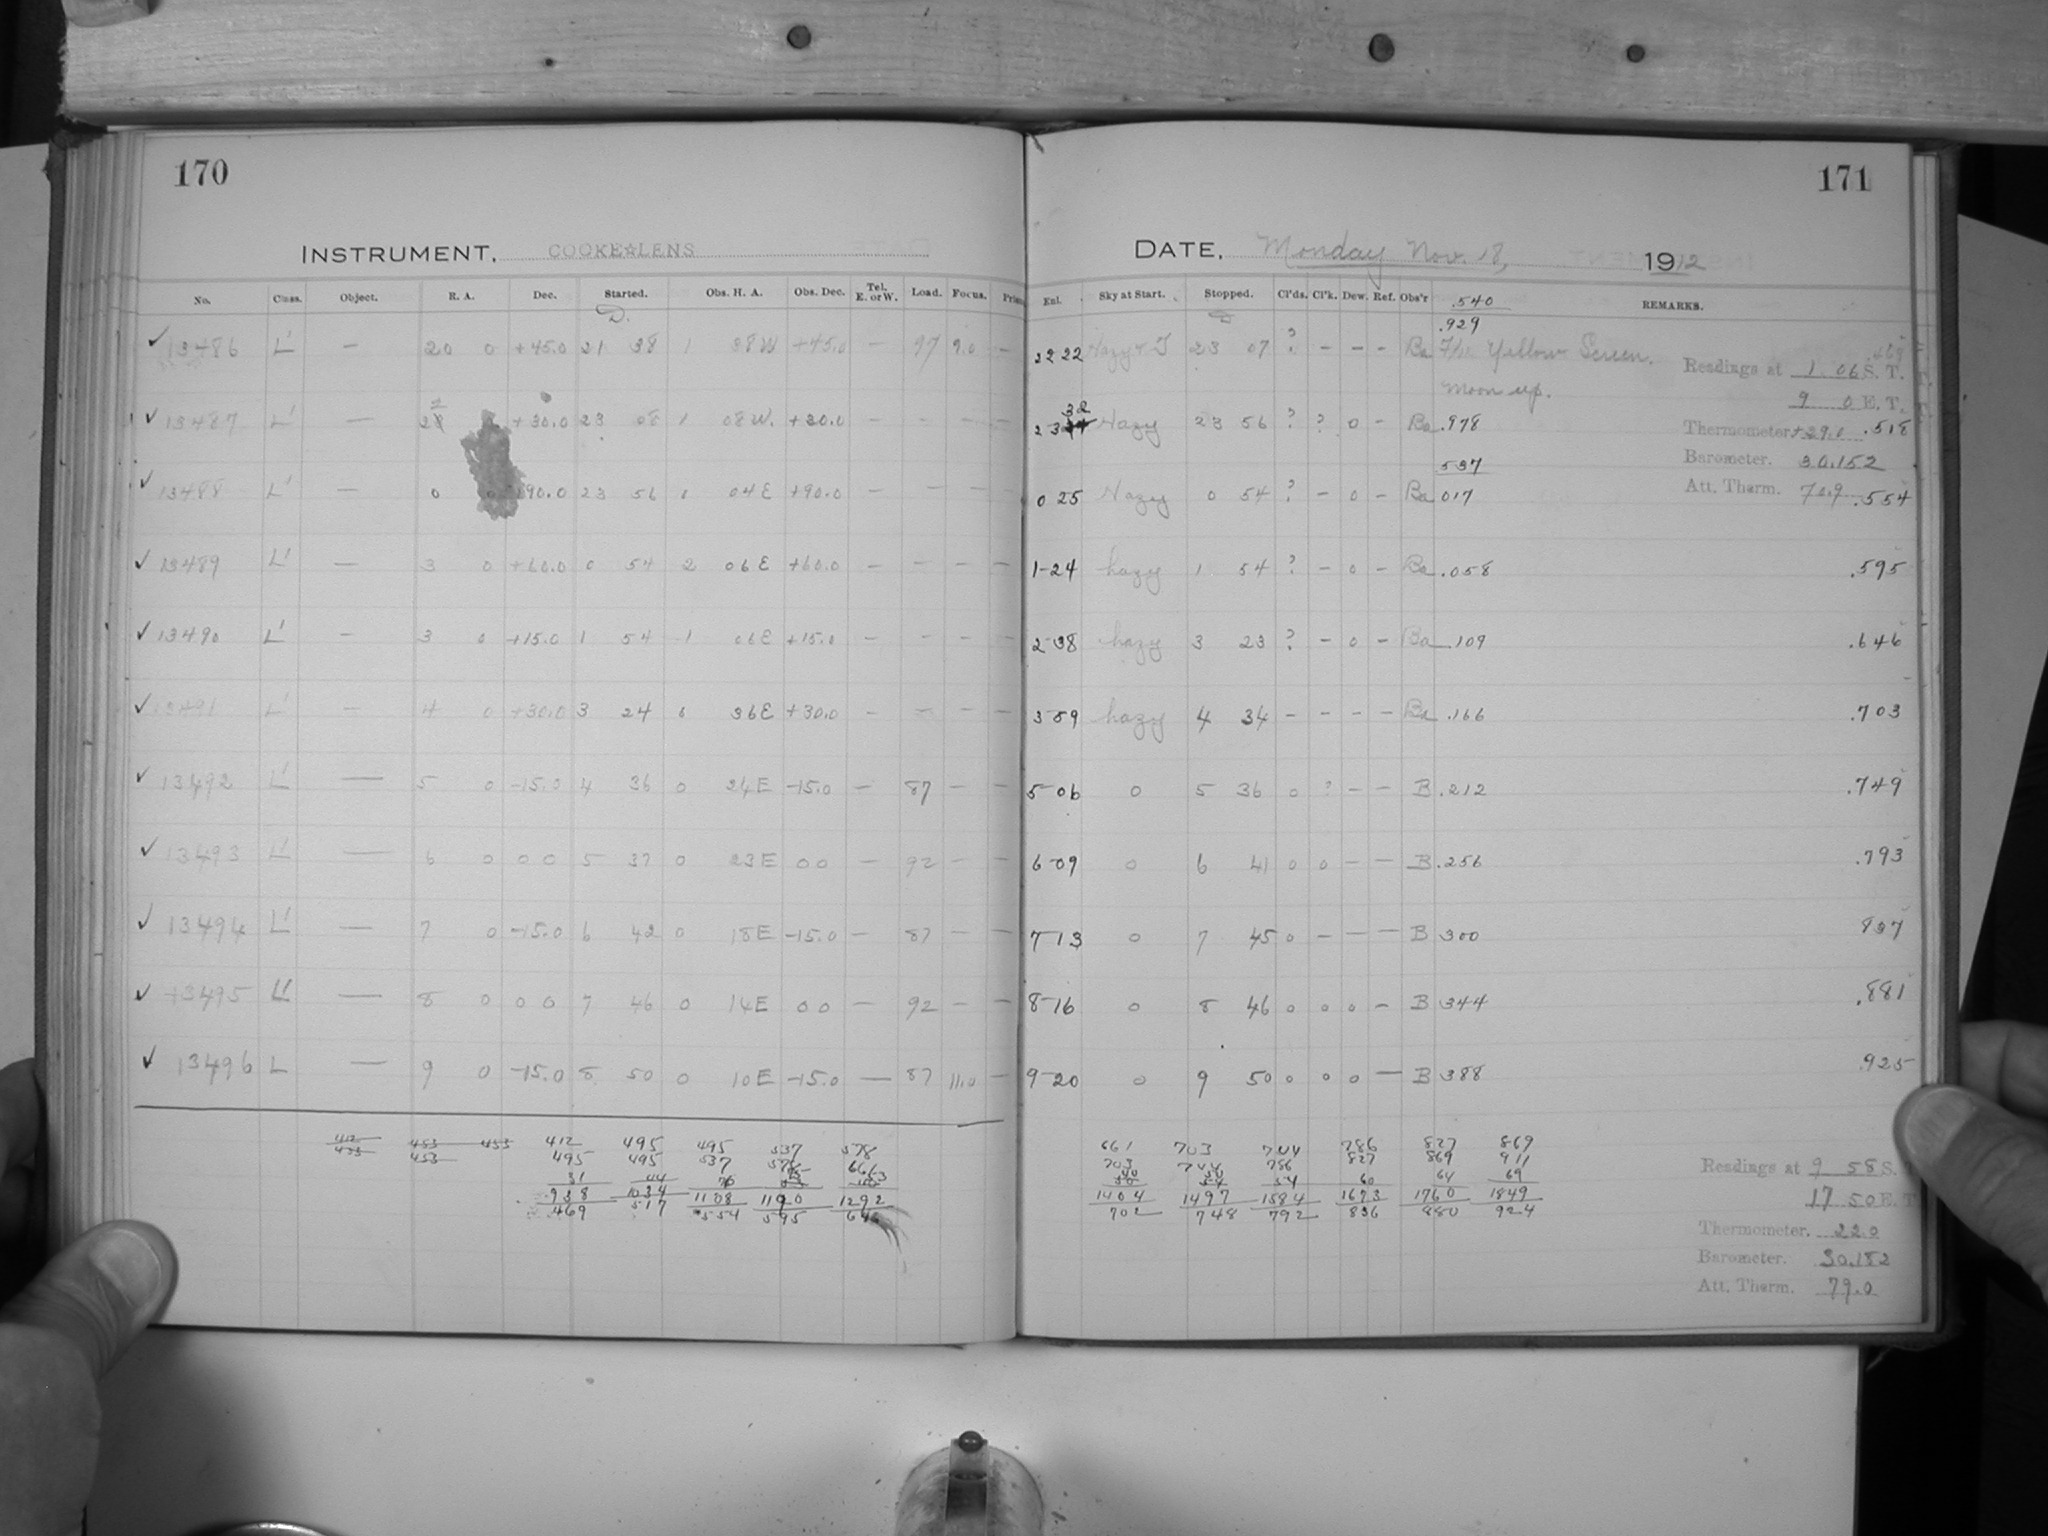 170
INSTRUMENT, COOKE☆LENS
No. Class. Object. R. A. Dec. Started. Obs. H. A. Obs. Dec. Tel. E. or W. Load. Focus.
✓ 13486 L' — 20 0 +45.0 21 38 1 38W +45.0 — 97 9.0 —
✓ 13487 L' — +30.0 23 08 1 08W. +30.0 — — — —
✓ 13488 L' — 0 90.0 23 56 1 04E +90.0 — — — —
✓ 13489 L' — 3 0 +60.0 0 54 2 06E +60.0 — — — —
✓ 13490 L' — 3 0 +15.0 1 54 1 06E +15.0 — — — —
✓ 13491 L' — 4 0 +30.0 3 24 0 36E +30.0 — — — —
✓ 13492 L' — 5 0 -15.0 4 36 0 24E -15.0 — 87 — —
✓ 13493 L' — 6 0 0 0 5 37 0 23E 0 0 — 92 — —
✓ 13494 L' — 7 0 -15.0 6 42 0 18E -15.0 — 87 — —
✓ 13495 L' — 8 0 0 0 7 46 0 14E 0 0 — 92 — —
✓ 13496 L — 9 0 -15.0 8 50 0 10E -15.0 — 87 11.0 —
412 453 453 412 495 495 537 578
453 495 495 537 578
31 44
938 1034 1108 1190 1292
469 517 554 595 646
171
DATE, Monday Nov. 18, 1912
Enl. Sky at Start. Stopped. Cl'ds. Cl'k. Dew. Ref. Obs'r .540 REMARKS.
.929
22 22 Hazy 23 07 ? — — — Ba Yellow Screen.
Readings at 1 06 S. T.
Moon up.
9 0 E. T.
23 32 Hazy 23 56 ? ? 0 — Ba .978
Thermometer +29.0 .518
.537
Barometer. 30.152
0 25 Hazy 0 54 ? — 0 — Ba 017
Att. Therm. 70.9 .554
1-24 hazy 1 54 ? — 0 — Ba .058 .595
2-38 hazy 3 23 ? — 0 — Ba .109 .646
3-59 hazy 4 34 — — — — Ba .166 .703
5-06 0 5 36 0 ? — — B .212 .749
6-09 0 6 41 0 0 — — B .256 .793
7-13 0 7 45 0 — — — B 300 837
8-16 0 8 46 0 0 0 — B 344 .881
9-20 0 9 50 0 0 0 — B 388 .925
661 703 744 786 827 869
703 744 786 827 869 911
60 64 69
1404 1497 1584 1673 1760 1849
702 748 792 836 880 924
Readings at 9 58 S.
17 50 E. T
Thermometer. 22.0
Barometer. 30.182
Att. Therm. 79.0